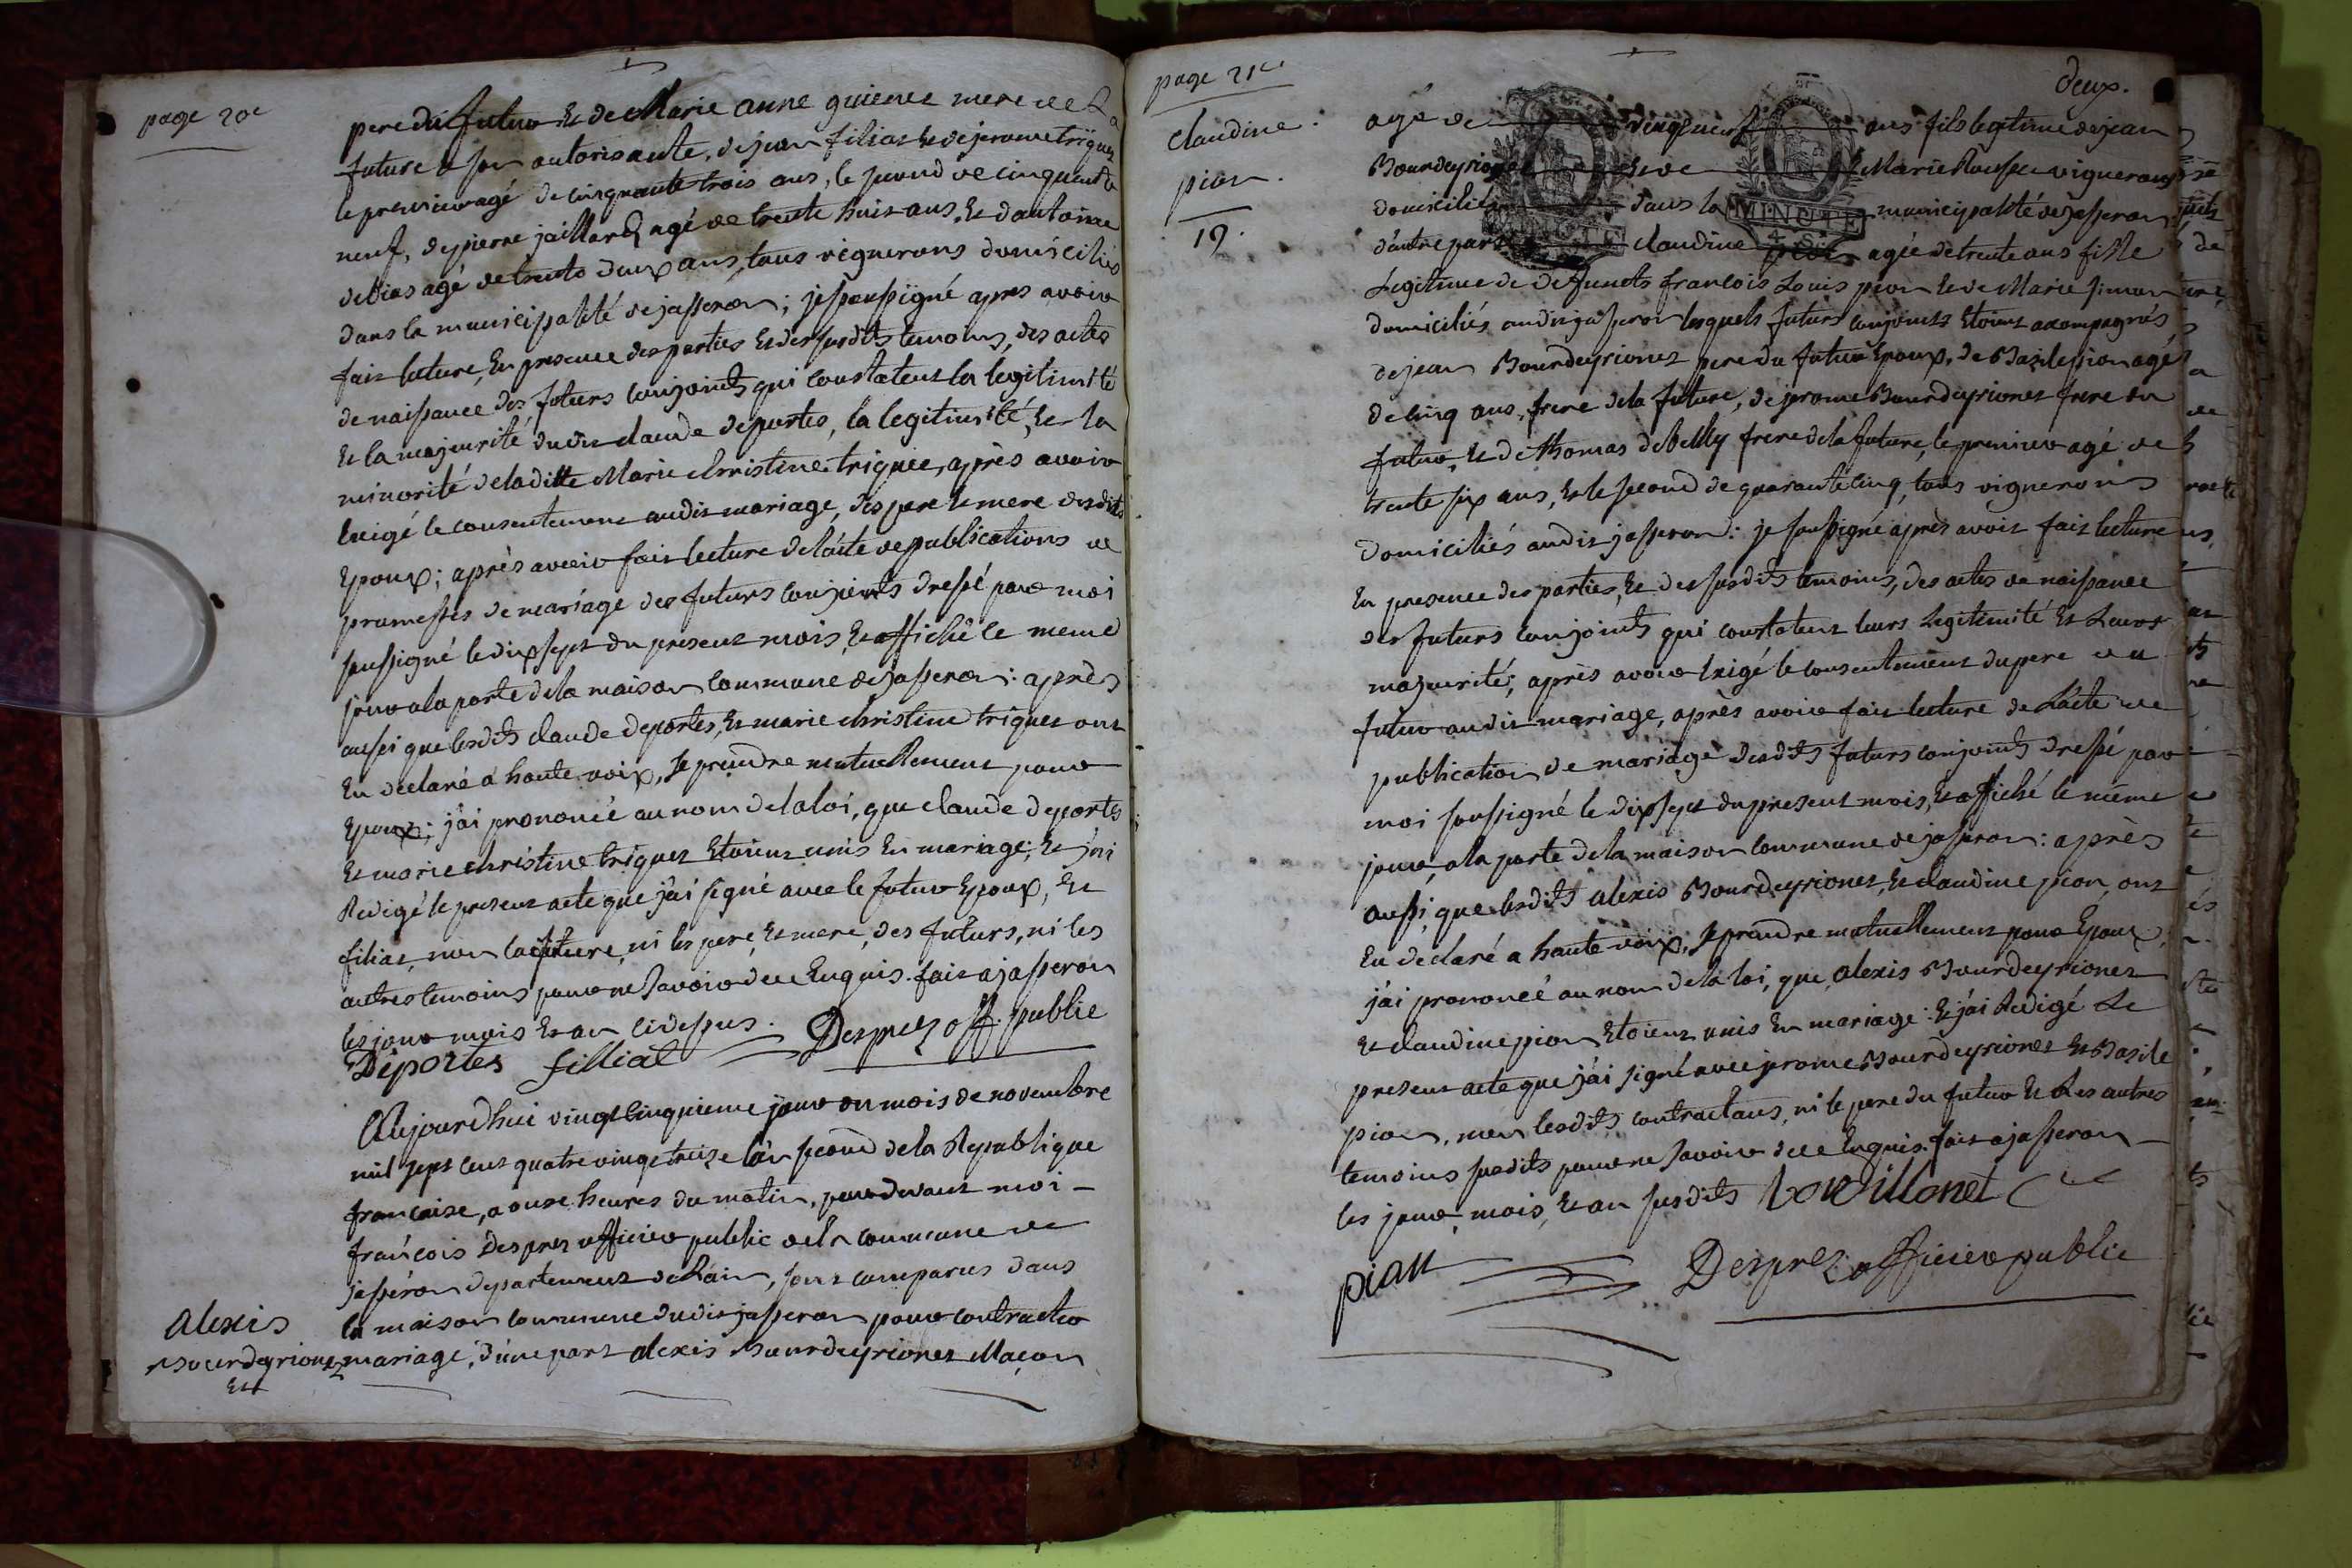 page 20e
pere du futur et de Marie anne guienet mere de la
future a son autorisante, de jean filias et de jerome triquet
le premier agé de cinquante trois ans, le second de cinquante
neuf, de pierre jaillard agé de trente huit ans, et d'antoine
debias agé de trente deux ans, tous vignerons domiciliés
dans la municipalité de jasseron; je soussigné apres avoir
fait lecture, En presence des parties et des susdits temoins, des actes
de naissance des futurs conjoints qui constatent la legitimité
et la majeurité dudit claude deportes, la legitimité, et la
minorité de laditte Marie christine triquet, après avoir
Exigé le consentement audit mariage, des pere et mere desdits
Epoux; après avoir fait lecture de l'acte de publications de
promesses de mariage des futurs conjoints dressé par moi
soussigné le dix sept du present mois, et affiché le meme
jour a la porte de la maison commune de jasseron: après
aussi que lesdits claude deportes, et marie christine triquet ont
Eu declaré à haute voix, se prendre mutuellement pour
Epoux; j'ai prononcé au nom de la loi, que claude deportes
et marie christine triquet Etoient unis En mariage; et j'ai
Redigé le present acte que j'ai signé avec le futur Epoux, et
filias, non la future, ni les pere, et mere, des futurs, ni les
autres temoins pour ne savoir de ce Enquis. fait a jasseron
les jour mois et an cidessus. Desprez off. public
Déportes fillial
Aujourdhui vingt cinquieme jour du mois de novembre
mil sept cent quatre vingt treize l'an second de la Republique
francaise, a onze heures du matin, pardevant moi
francois Desprez officier public de la commune de
jasseron departement de l'ain, sont comparus dans
la maison commune dudit jasseron pour contracter
Alexis
Bourdeyrionet mariage, d'une part alexis Bourdeyrionet Maçon
et
page 21e
deux.
claudine
pion.
19.
agé de vingt neuf ans fils legitime de jean
Bourdeyrionet et de Marie Rousset vignerons
domiciliés dans la municipalité de jasseron
d'autre part claudine pion agée de trente ans fille
Legitime de defunts francois Louis pion et de Marie
domiciliés audit jasseron lesquels futurs conjoints Etoient accompagnés
de jean Bourdeyrionet pere du futur Epoux, de Basile pion agé
de cinq ans, frere de la future, de jerome Bourdeyrionet frere du
futur, et de thomas debelly frere de la future, le premier agé de
trente six ans, et le second de quarante cinq, tous vignerons
domiciliés audit jasseron: je soussigné après avoir fait lecture
En presence des parties, et des susdits temoins, des actes de naissance
des futurs conjoints qui constatent leurs Legitimité et Leurs
majeurité; après avoir Exigé le consentement du pere du
futur audit mariage, après avoir fait lecture de L'acte de
publication de mariage desdits futurs conjoints dressé par
moi soussigné le dix sept du present mois, et affiché le même
jour, a la porte de la maison commune de jasseron: après
aussi, que lesdits alexis Bourdeyrionet, et claudine pion, ont
Eu declaré a haute voix, se prendre mutuellement pour Epoux,
j'ai prononcé au nom de la loi, que, alexis Bourdeyrionet
et claudine pion, Etoient unis En mariage: et j'ai Redigé Le
present acte que j'ai signé avec jerome Bourdeyrionet et Basile
pion, non lesdits contractans, ni le pere du futur et Les autres
temoins susdits pour ne savoir de ce Enquis. fait a jasseron
les jour, mois, et an susdits
pian Desprez officier public